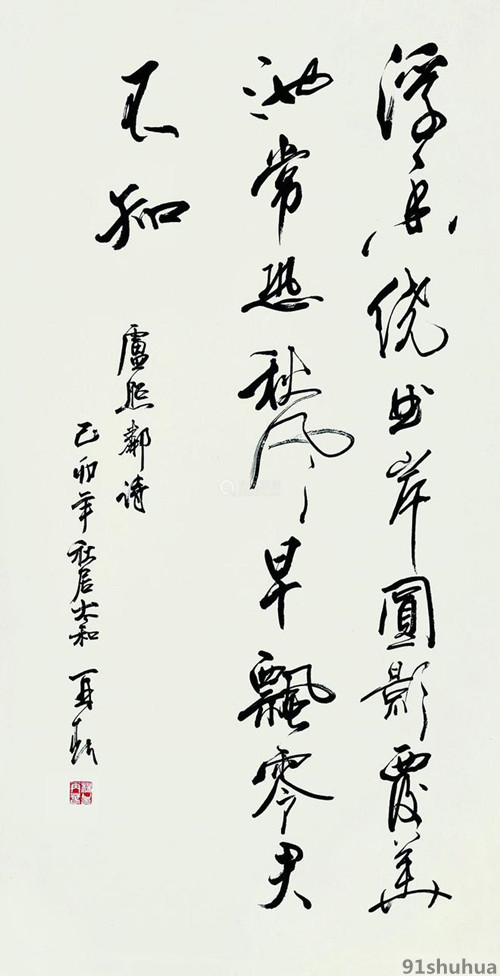 浮香绕曲岸圓影覆華
池常恐秋风早飄零君
不知
盧照鄰詩
己卯年
91shuhua